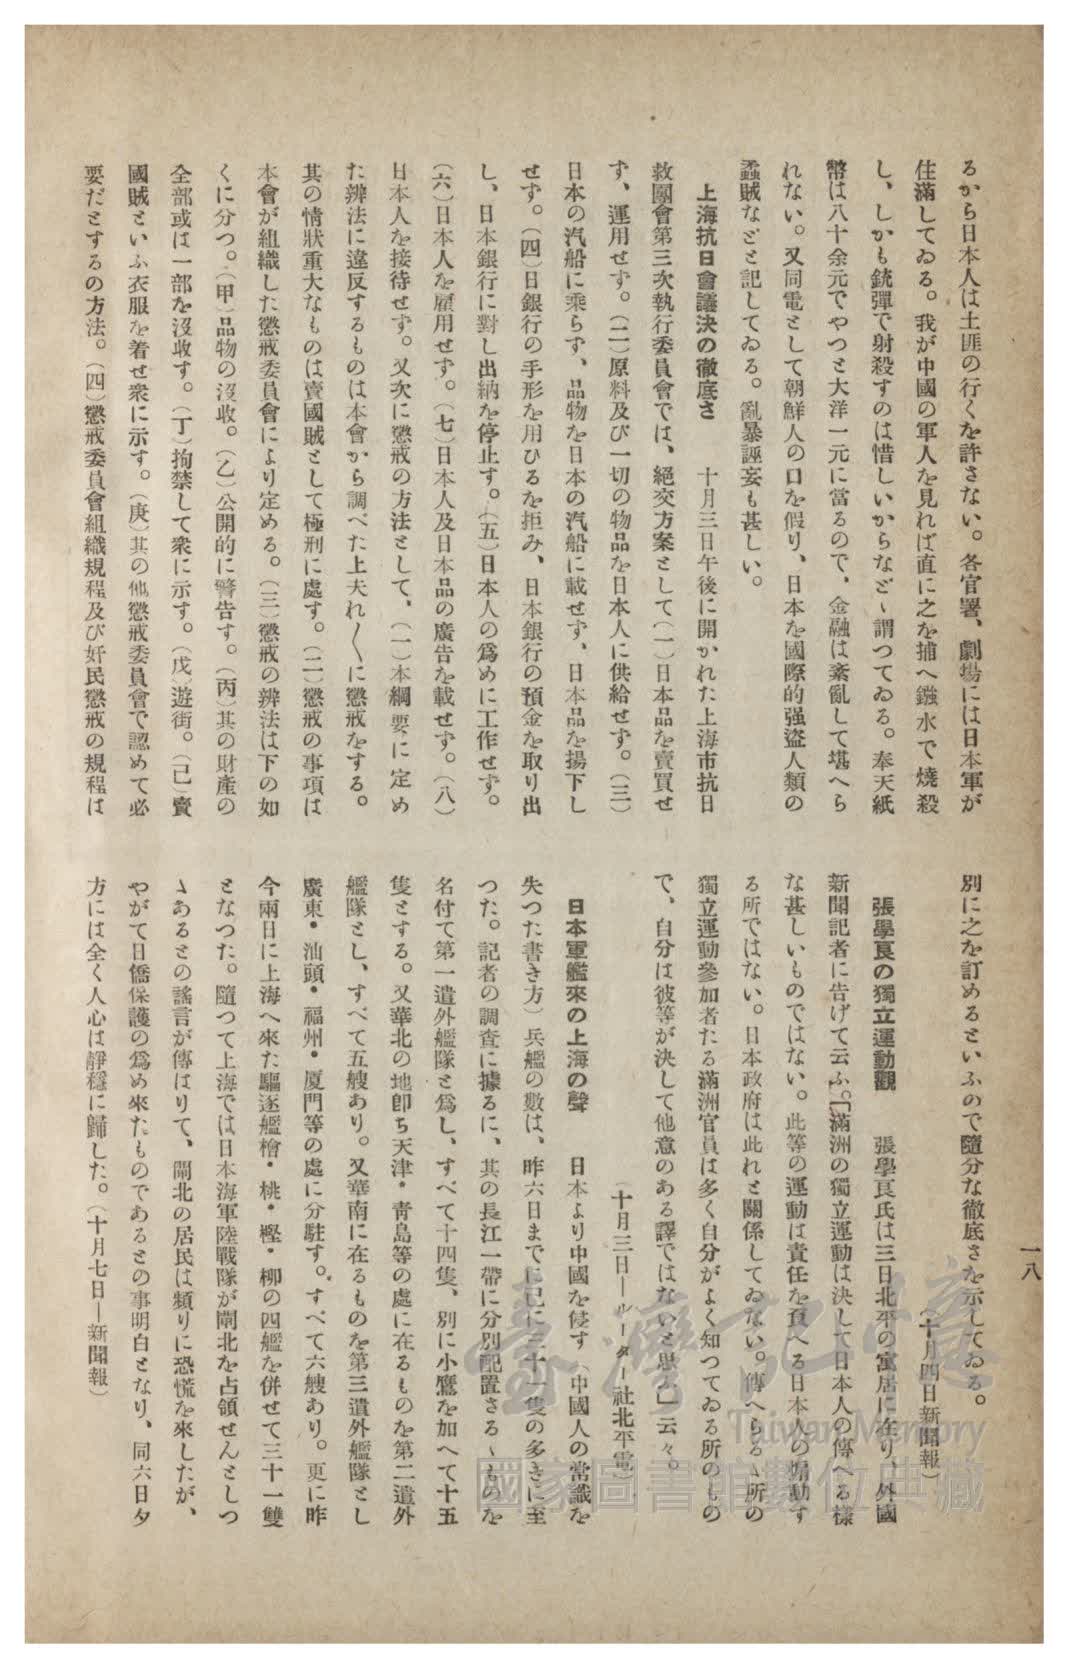 るから日本人は土匪の行くを許さない。各官署、劇場には日本軍が
住滿してゐる。我が中國の軍人を見れば直に之を捕へ鏹水で燒殺
し、しかも銃彈で射殺すのは惜しいからなど、謂つてゐる。奉天紙
幣は八十余元でやつと大洋一元に當るので、金融は紊亂して堪へら
れない。又同電として朝鮮人の口を假り、日本を國際的强盜人類の
蟊賊などと記してゐる。亂暴誣妄も甚しい。
上海抗日會議決の徹底さ　十月三日午後に開かれた上海市抗日
救國會第三次執行委員會では、絕交方案として(一)日本品を賣買せ
ず、運用せず。(二)原料及び一切の物品を日本人に供給せず。(三)
日本の汽船に乘らず、品物を日本の汽船に載せず、日本品を揚下し
せず。(四)日銀行の手形を用ひるを拒み、日本銀行の預金を取り出
し、日本銀行に對し出納を停止す。(五)日本人の爲めに工作せず。
(六)日本人を雇用せず。(七)日本人及日本品の廣告を載せず。(八)
日本人を接待せず。又次に懲戒の方法として、(一)本綱要に定め
た辨法に違反するものは本會から調べた上夫れ〱に懲戒をする。
其の情狀重大なものは賣國賊として極刑に處す。(二)懲戒の事項は
本會が組織した懲戒委員會により定める。(三)懲戒の辨法は下の如
くに分つ。(甲)品物の沒收。(乙)公開的に警告す。(丙)其の財產の
全部或は一部を沒收す。(丁)拘禁して衆に示す。(戊)遊街。(己)賣
國賊といふ衣服を着せ衆に示す。(庚)其の他懲戒委員會で認めて必
要だとするの方法。(四)懲戒委員會組織規程及び奸民懲戒の規程は
別に之を訂めるといふので隨分な徹底さを示してゐる。
(十月四日新聞報)
張學良の獨立運動觀　張學良氏は三日北平の寓居に在り、外國
新聞記者に告げて云ふ。「滿洲の獨立運動は決して日本人の傳へる樣
な甚しいものではない。此等の運動は責任を負へる日本人の煽動す
る所ではない。日本政府は此れと關係してゐない。傳へらるゝ所の
獨立運動參加者たる滿洲官員は多く自分がよく知つてゐる所のもの
で、自分は彼等が決して他意のある譯ではないと思ふ」云々。
(十月三日ールーター社北平電)
日本軍艦來の上海の聲　日本より中國を侵す(中國人の常識を
失つた書き方)兵艦の數は、昨六日までに已に三十一隻の多きに至
つた。記者の調査に據るに、其の長江一帶に分別配置さるゝものを
名付て第一遣外艦隊と爲し、すべて十四隻、別に小鷹を加へて十五
隻とする。又華北の地卽ち天津・靑島等の處に在るものを第二遣外
艦隊とし、すべて五艘あり。又華南に在るものを第三遣外艦隊とし
廣東・汕頭・福州・厦門等の處に分駐す。すべて六艘あり。更に昨
今兩日に上海へ來た驅逐艦檜・桃・樫・柳の四艦を併せて三十一雙
となつた。隨つて上海では日本海軍陸戰隊が閘北を占領せんとしつ
ゝあるとの謠言が傳はりて、閘北の居民は頻りに恐慌を來したが、
やがて日僑保護の爲め來たものであるとの事明白となり、同六日夕
方には全く人心は靜穩に歸した。(十月七日ー新聞報)
一八
臺灣記憶
Taiwan Memory
國家圖書館數位典藏